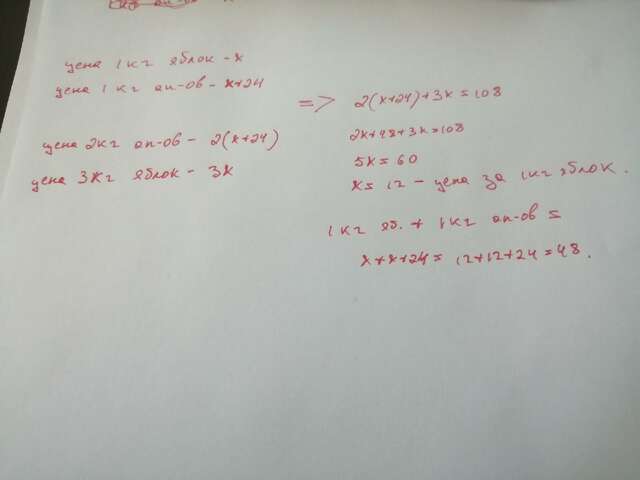 цена 1кг яблок - x
цена 1 кг ап-ов - x+24
цена 2кг ап-ов - 2(x+24)
цена 3кг яблок - 3x
=> 2(x+24)+3x=108
2x+48+3x=108
5x=60
x=12 - цена за 1кг яблок.
1 кг яб. + 1кг ап-ов =
x+x+24=12+12+24=48.